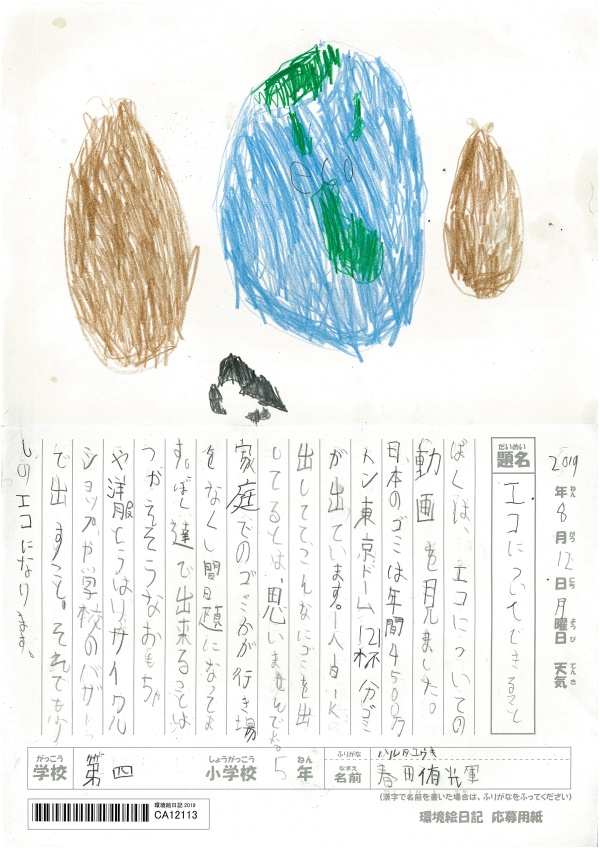 eco
2019年8月12日月曜日 天気
ねん がつ にち ようび てんき
だいめい
題名
エコについてできること
ぼくは、エコについての
動画を見ました。
日本のゴミは年間4500万
トン東京ドーム121杯分ゴミ
が出ています。一人1日1K
出してて、こんなにゴミを出
してるとは、思いませんでし
家庭でのゴミが行き場
をなくし間題になってま
す。ぼく達で出来ることは
つかえそうなおもちゃ
や洋服とうはリサイクル
ショップや学校のバザー
で出すこと。それでも少
しのエコになります。
がっこう しょうがっこう ねん
学校 第四 小学校 5年
ふりがな
なまえ
名前
(漢字で名前を書いた場合は、ふりがなをふってください)
環境絵日記 2019
CA12113
環境絵日記 応募用紙